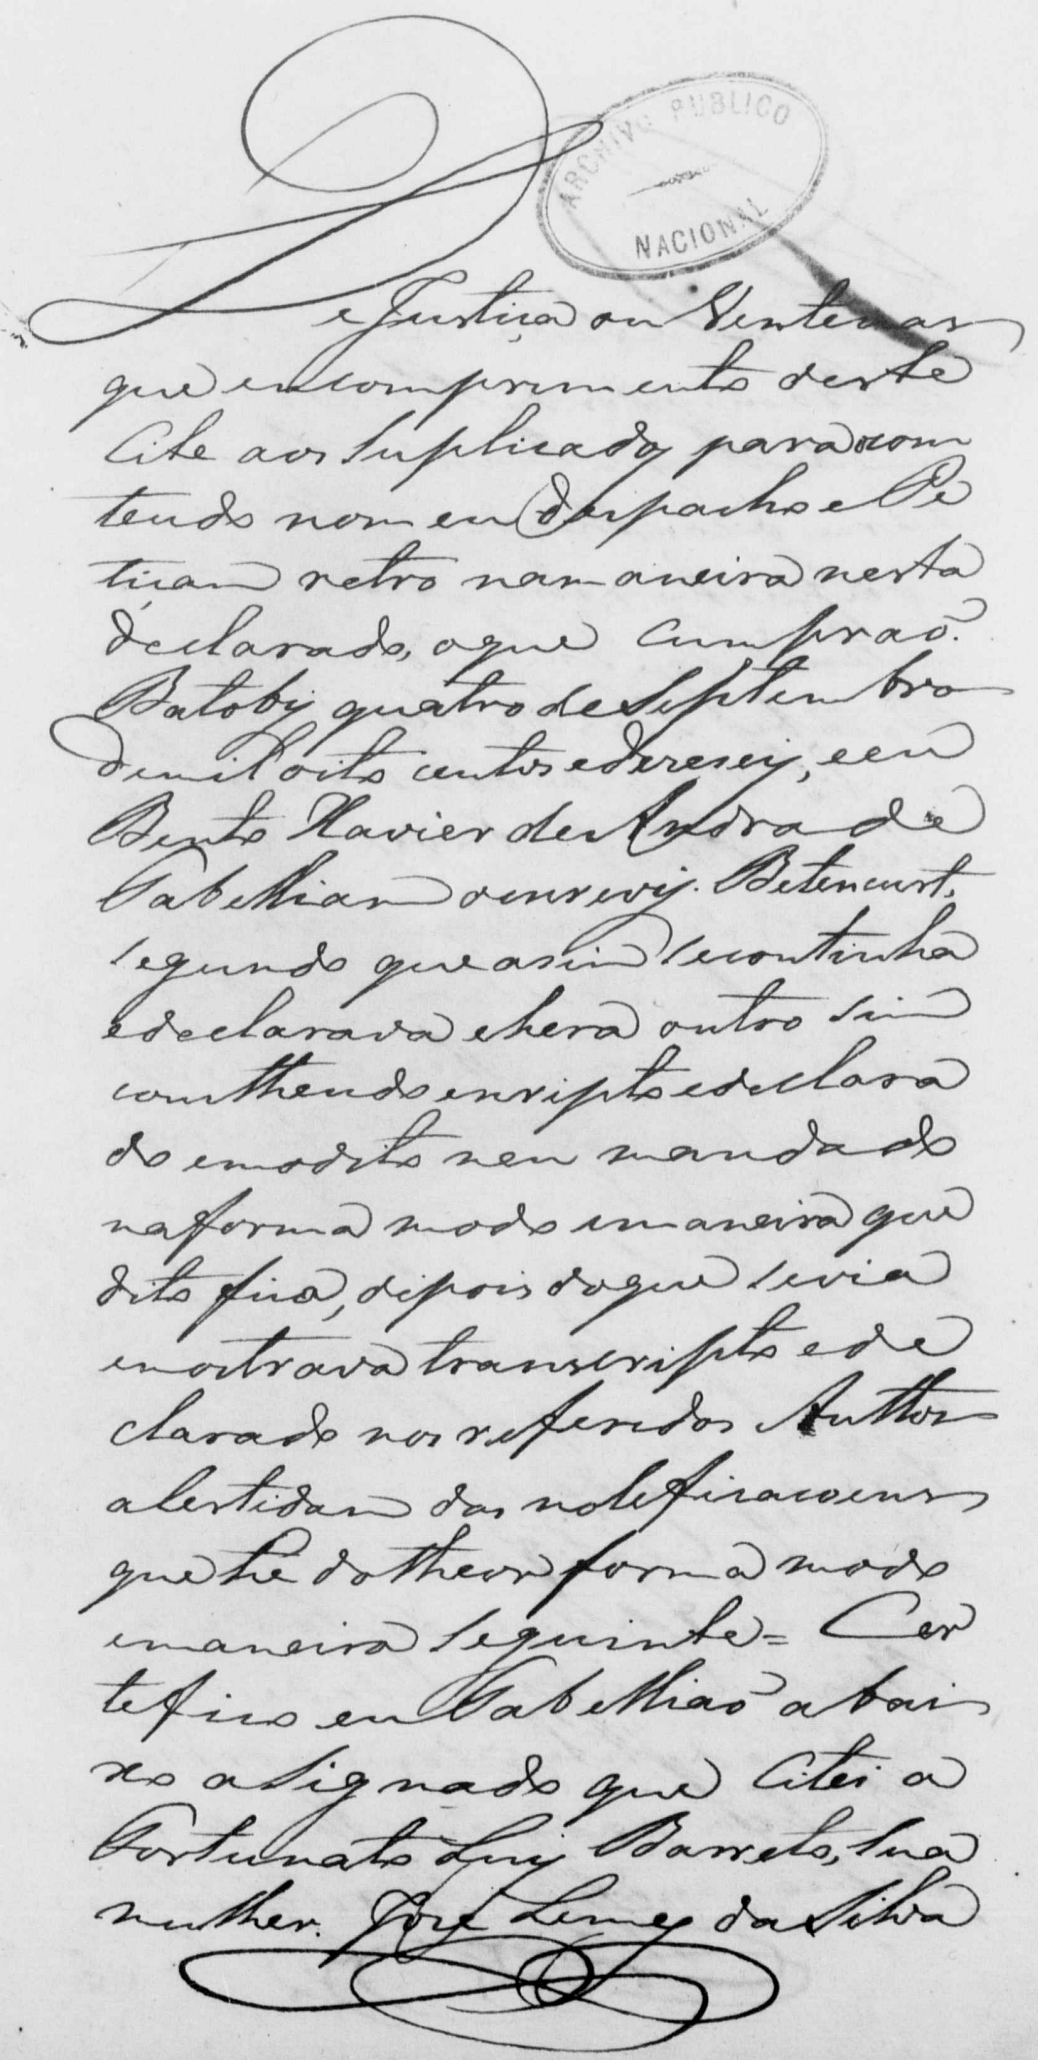 ARCHIVO PUBLICO
NACIONAL
De Justiça ou Ventenas
que em comprimento deste
Cite aos Suplicados para o com
tendo no meu despacho e Pe
ticam retro na maneira nesta
declarado, o que Cumpraõ.
Batoby quatro de Septembro
de mil oito centos e dezeseis, e eu
Bento Xavier de Andrade
Tabelliam o escrevij. Betencurt.
segundo que asim se continha
e declarava e hera outro sim
comtheudo escripto e declara
do em o dito meu mandado
na forma modo e maneira que
dito fica, depois do que se via
e mostrava transcripto e de
clarado nos referidos Authos
a Certidam das noteficacoens
que he do theor forma modo
e maneira seguinte = Cer
tefico eu Tabelliaõ abai
xo asignado que Citei a
Fortunato Luis Barreto, sua
mulher. José Lemes da Silva